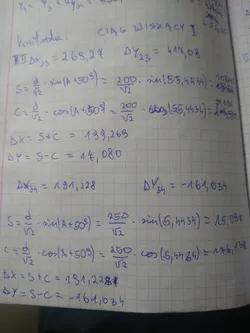 kontrola: CIĄG WISZĄCY I
S = d/√2 · sin(A+50ᵍ) = 200/√2 · sin(55,4434)
C = d/√2 · cos(A+50ᵍ) = 200/√2 · cos(55,4434)
ΔX = S+C = 199,269
ΔY = S-C = 17,080
ΔX₃₄ = 191,228 ΔY₃₄ = -161,034
S = d/√2 · sin(A+50ᵍ) = 250/√2 · sin(5,4434) = 15,097
C = d/√2 · cos(A+50ᵍ) = 250/√2 · cos(5,4434) =
ΔX = S+C = 191,228
ΔY = S-C = -161,034